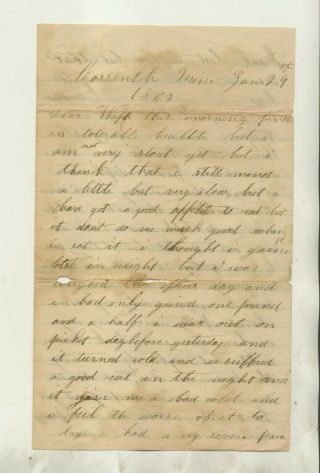 Corrinth Miss. Jan 29th
1863
Dear Wife this morning finds
in tolerable health but i
am not very stout yet but i
think that i still mend
a little but very slow but i
have got a good appetit to eat but
it dont do me much good when
i eat it i thought i gained
lots in weight but i was
weighed the other day and
i had only gained one pound
and a half i was out on
picket day before yesterday and
it turned cold and i suffered
a good eal in the night and
it give me a bad cold and
i feel the worse of it to
day i had a very severe pain